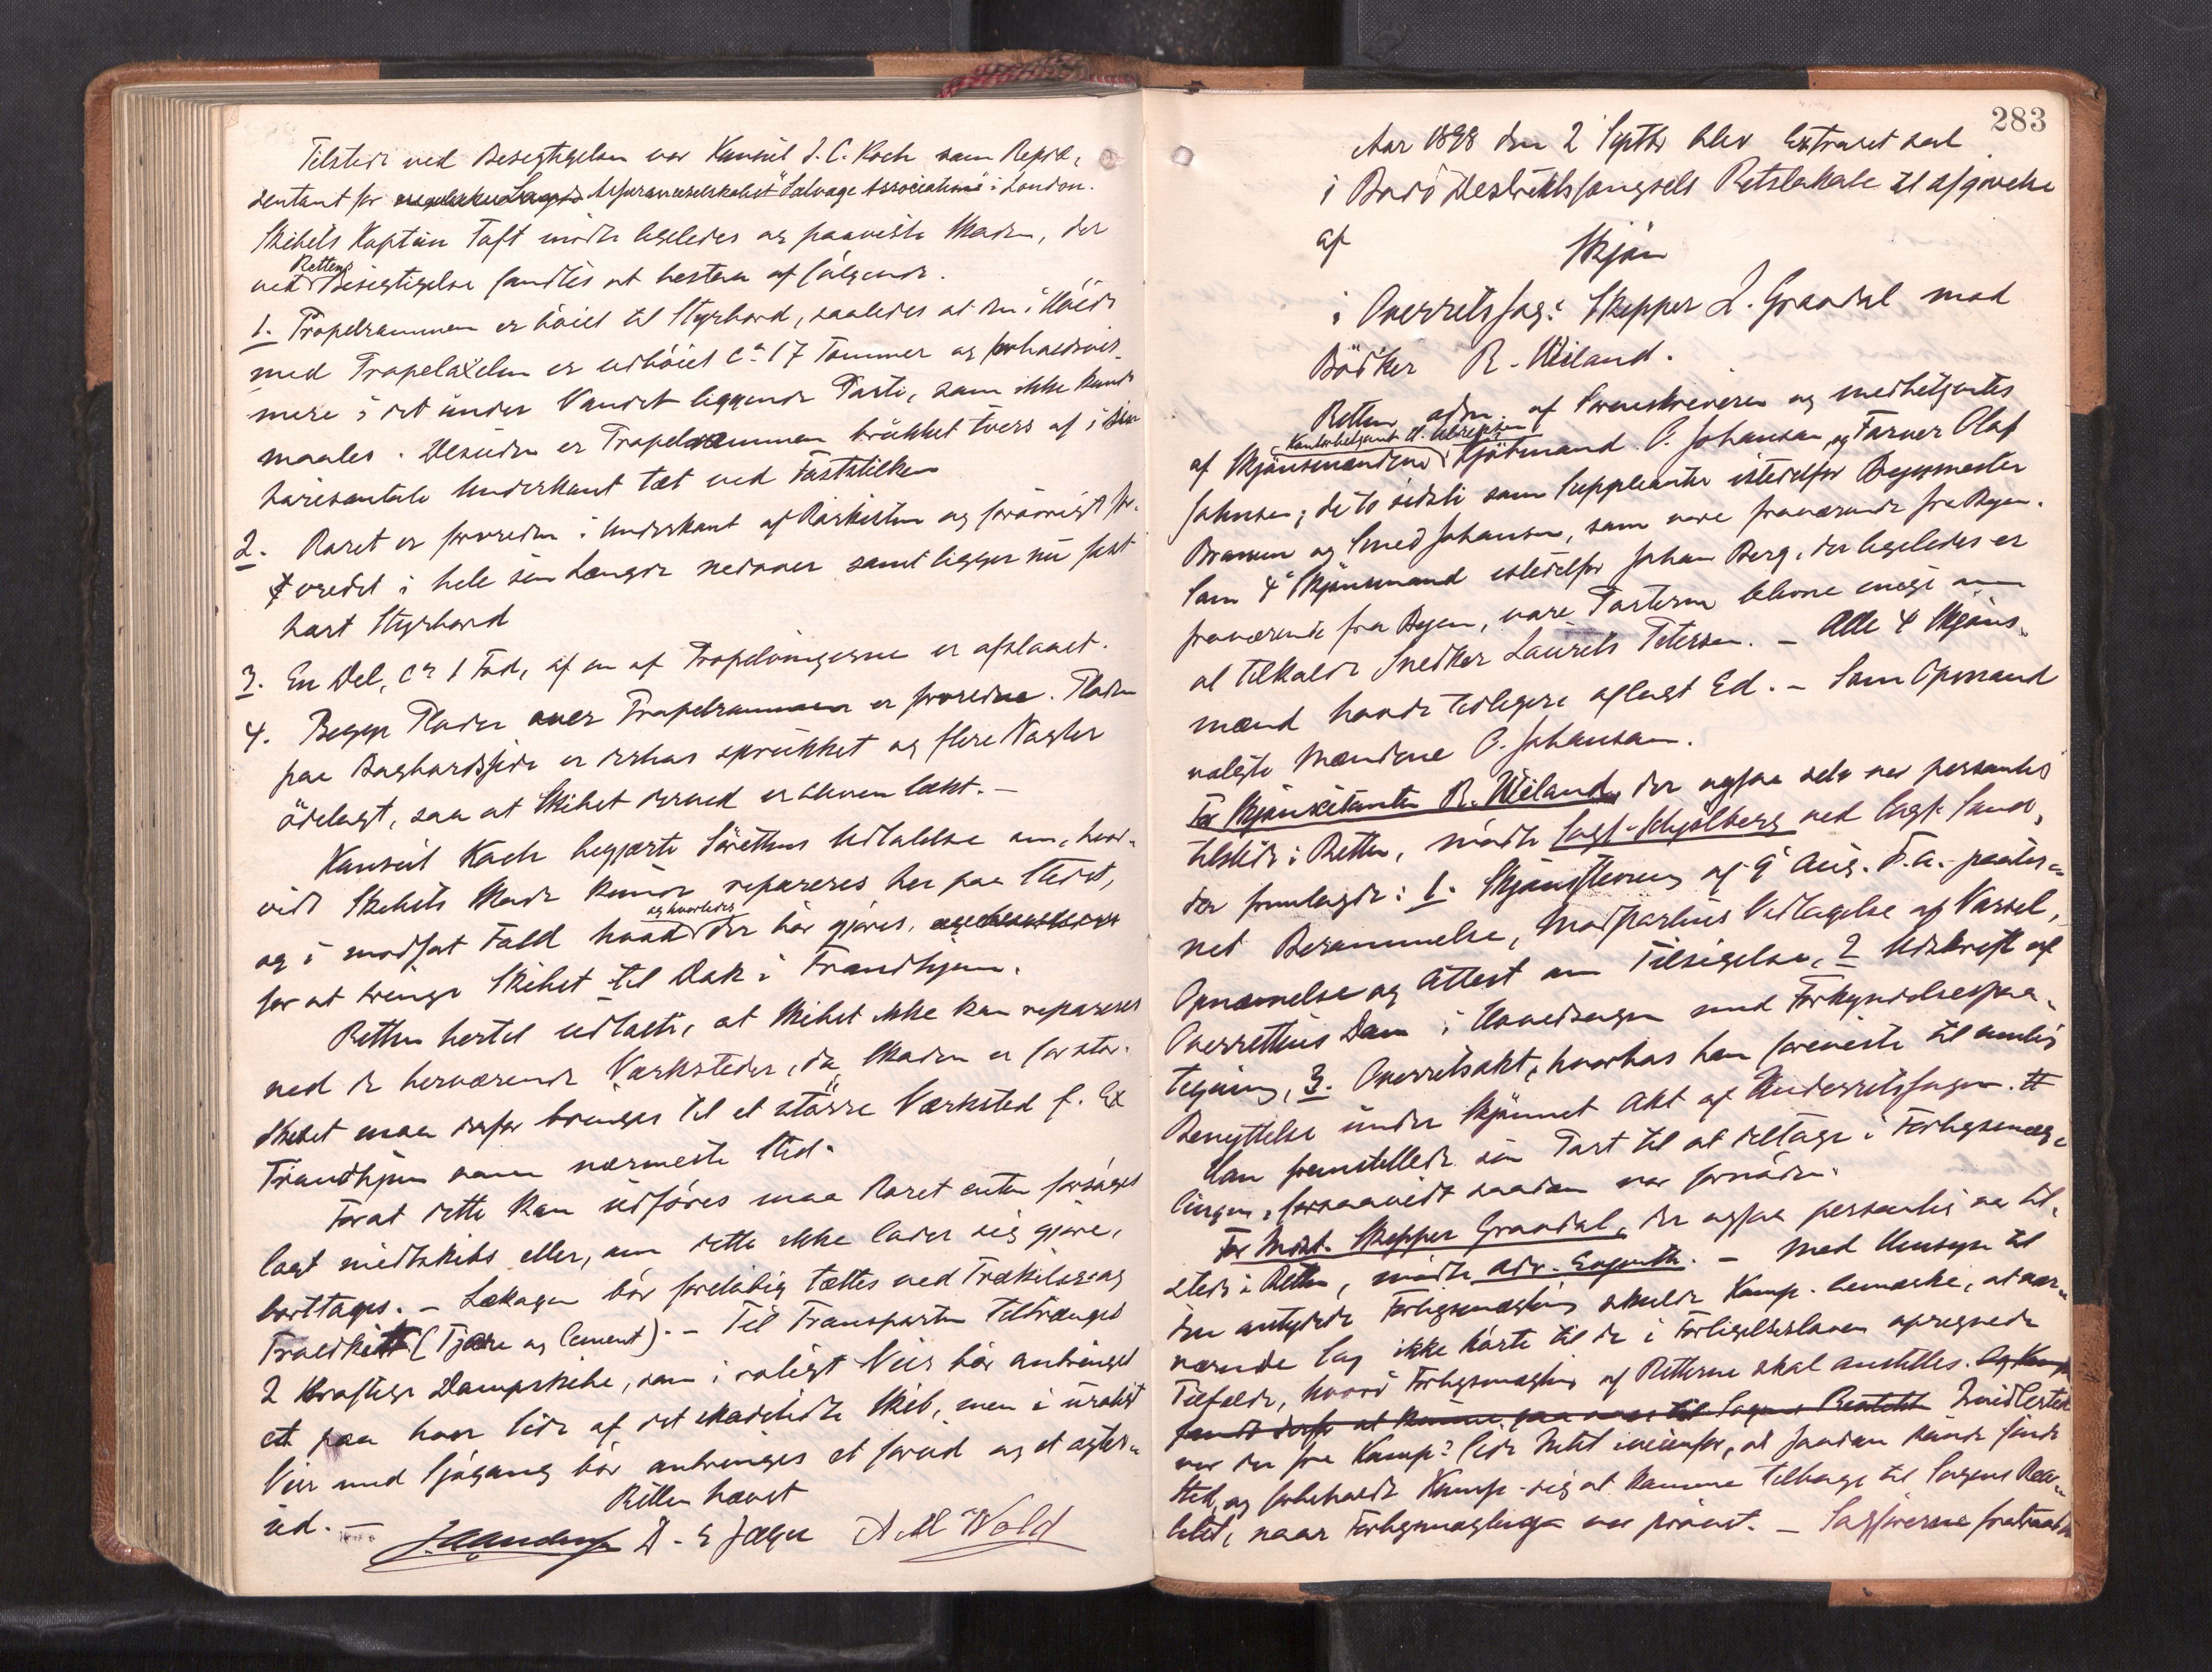 Tilstede ved Besigtigelsen var Konsul J. C. Koch som Repræ-
sentant for Assuranceselskabet "Salvage Association" i London.
Skibets Kaptein Taft mødte ligeledes og paaviste Skaden, der
ved Rettens Besigtigelse fandtes at bestaa af følgende.
1. Propelrammen er bøiet til Styrbord, saaledes at den i Høide
med Propelaxelen er udbøiet ca 17 Tommer og forholdsvis
mere i det under Vandet liggende Parti, som ikke kunde
maales. Desuden er Propelrammen brukket tvers af i sin
horisontale Underkant tæt ved
2. Roret er forvreden i Underkant af Rorkisten og forøvrigt for-
vredet i hele sin Længde nedover samt ligger nu fast
hart Styrbord
3. En Del, ca 1 Fod, af en af Propelvingerne er afslaaet.
4. Begge Plader over Propelrammen er forvredne. Pladen
paa Bagbordsside er derhos sprukket og flere Nagler
ødelagt, saa at Skibet derved er bleven læk. -
Konsul Koch begjærte Sørettens Udtalelse om, hvor-
vidt Skibets Skade kunde repareres her paa Stedet,
og i modsat Fald hvad og hvorledes der bør gjøres,
for at bringe Skibet til Dok i Trondhjem.
Retten hertil udtalte, at Skibet ikke kan repareres
ved de herværende Værksteder, da Skaden er for stor.
Skibet maa derfor bringes til et større Værksted f. Ex
Trondhjem som nærmeste Sted.
Forat dette kan udføres maa Roret enten forsøges
lagt midtskibs eller, om dette ikke lader sig gjøre,
borttages. - Lækagen bør foreløbig tættes ved Trækiler og
(Tjære og Cement). - Til Transporten tiltrænges
2 kraftige Dampskibe, som i roligt Veir bør anbringes
et paa hver Side af det skadelidte Skib, men i uroligt
Veir med Sjøgang bør anbringes et forud og et agter-
ud. -
Retten hævet
D. E Jæger A M Wold
283
Aar 1898 den 2 Septbr blev Extraret sat
i Bodø Destriktsfængsels Retslokale til afgivelse
af
Skjøn
i Overretssag: Skipper L. Graadal mod
Bødker R. Weiland.
Retten adm. af Sorenskriveren og medbetjentes
af Skjønsmændene: Kjøbmand O. Johansen og Farver Olaf
Johnsen; de to sidste som Suppleanter istedetfor Bygmester
Bransen og Smed Johansen, som vare fraværende fra Byen.
Som 4de Skjønsmand istedetfor Johan Berg, der ligeledes er
fraværende fra Byen, vare Parterne blevne enige om
at tilkalde Snedker Laurits Petersen. - Alle 4 Skjøns-
mænd havde tidligere aflagt Ed. - Som Opmand
valgte Mændene O. Johansen.
For Skjønscitanten R. Weiland, der ogsaa selv var personlig
tilstede i Retten, mødte Sagf. Schjølberg ved Sagf. Sund,
der fremlagde: 1. Skjønsstevning af 9 Aug. d. A. paateg-
net Berammelse, Modpartens Vedtagelse af Varsel,
Opnævnelse og Attest om Tilsigelse, 2 Udskrift af
Overrettens Dom i Hovedsagen med Forkyndelsespaa-
tegning, 3. Overretsakt, hvorhos han foreviste til
Benyttelse under Skjønnet Akt af Underretssagen.
Han fremstillede sin Part til at deltage i Forligsmæg-
lingen, forsaavidt saadan var fornøden.
For Modst. Skipper Graadal, der ogsaa personlig var til-
stede i Retten, mødte adv. Engseth. - Med Hensyn til
den antydede Forligsmægling skulde Komp. bemærke, at nær-
værende Sag ikke hørte til de i Forligelsesloven opregnede
Tilfælde, hvori Forligsmægling af Retterne skal anstilles. Imidlertid
var der fra Komp.s Side Intet iveien for, at saadan kunde finde
Sted, og forbeholdt Komp. sig at komme tilbage til Sagens Rea-
litet, naar Forligsmægling var prøvet. - Sagførerne fratraadte